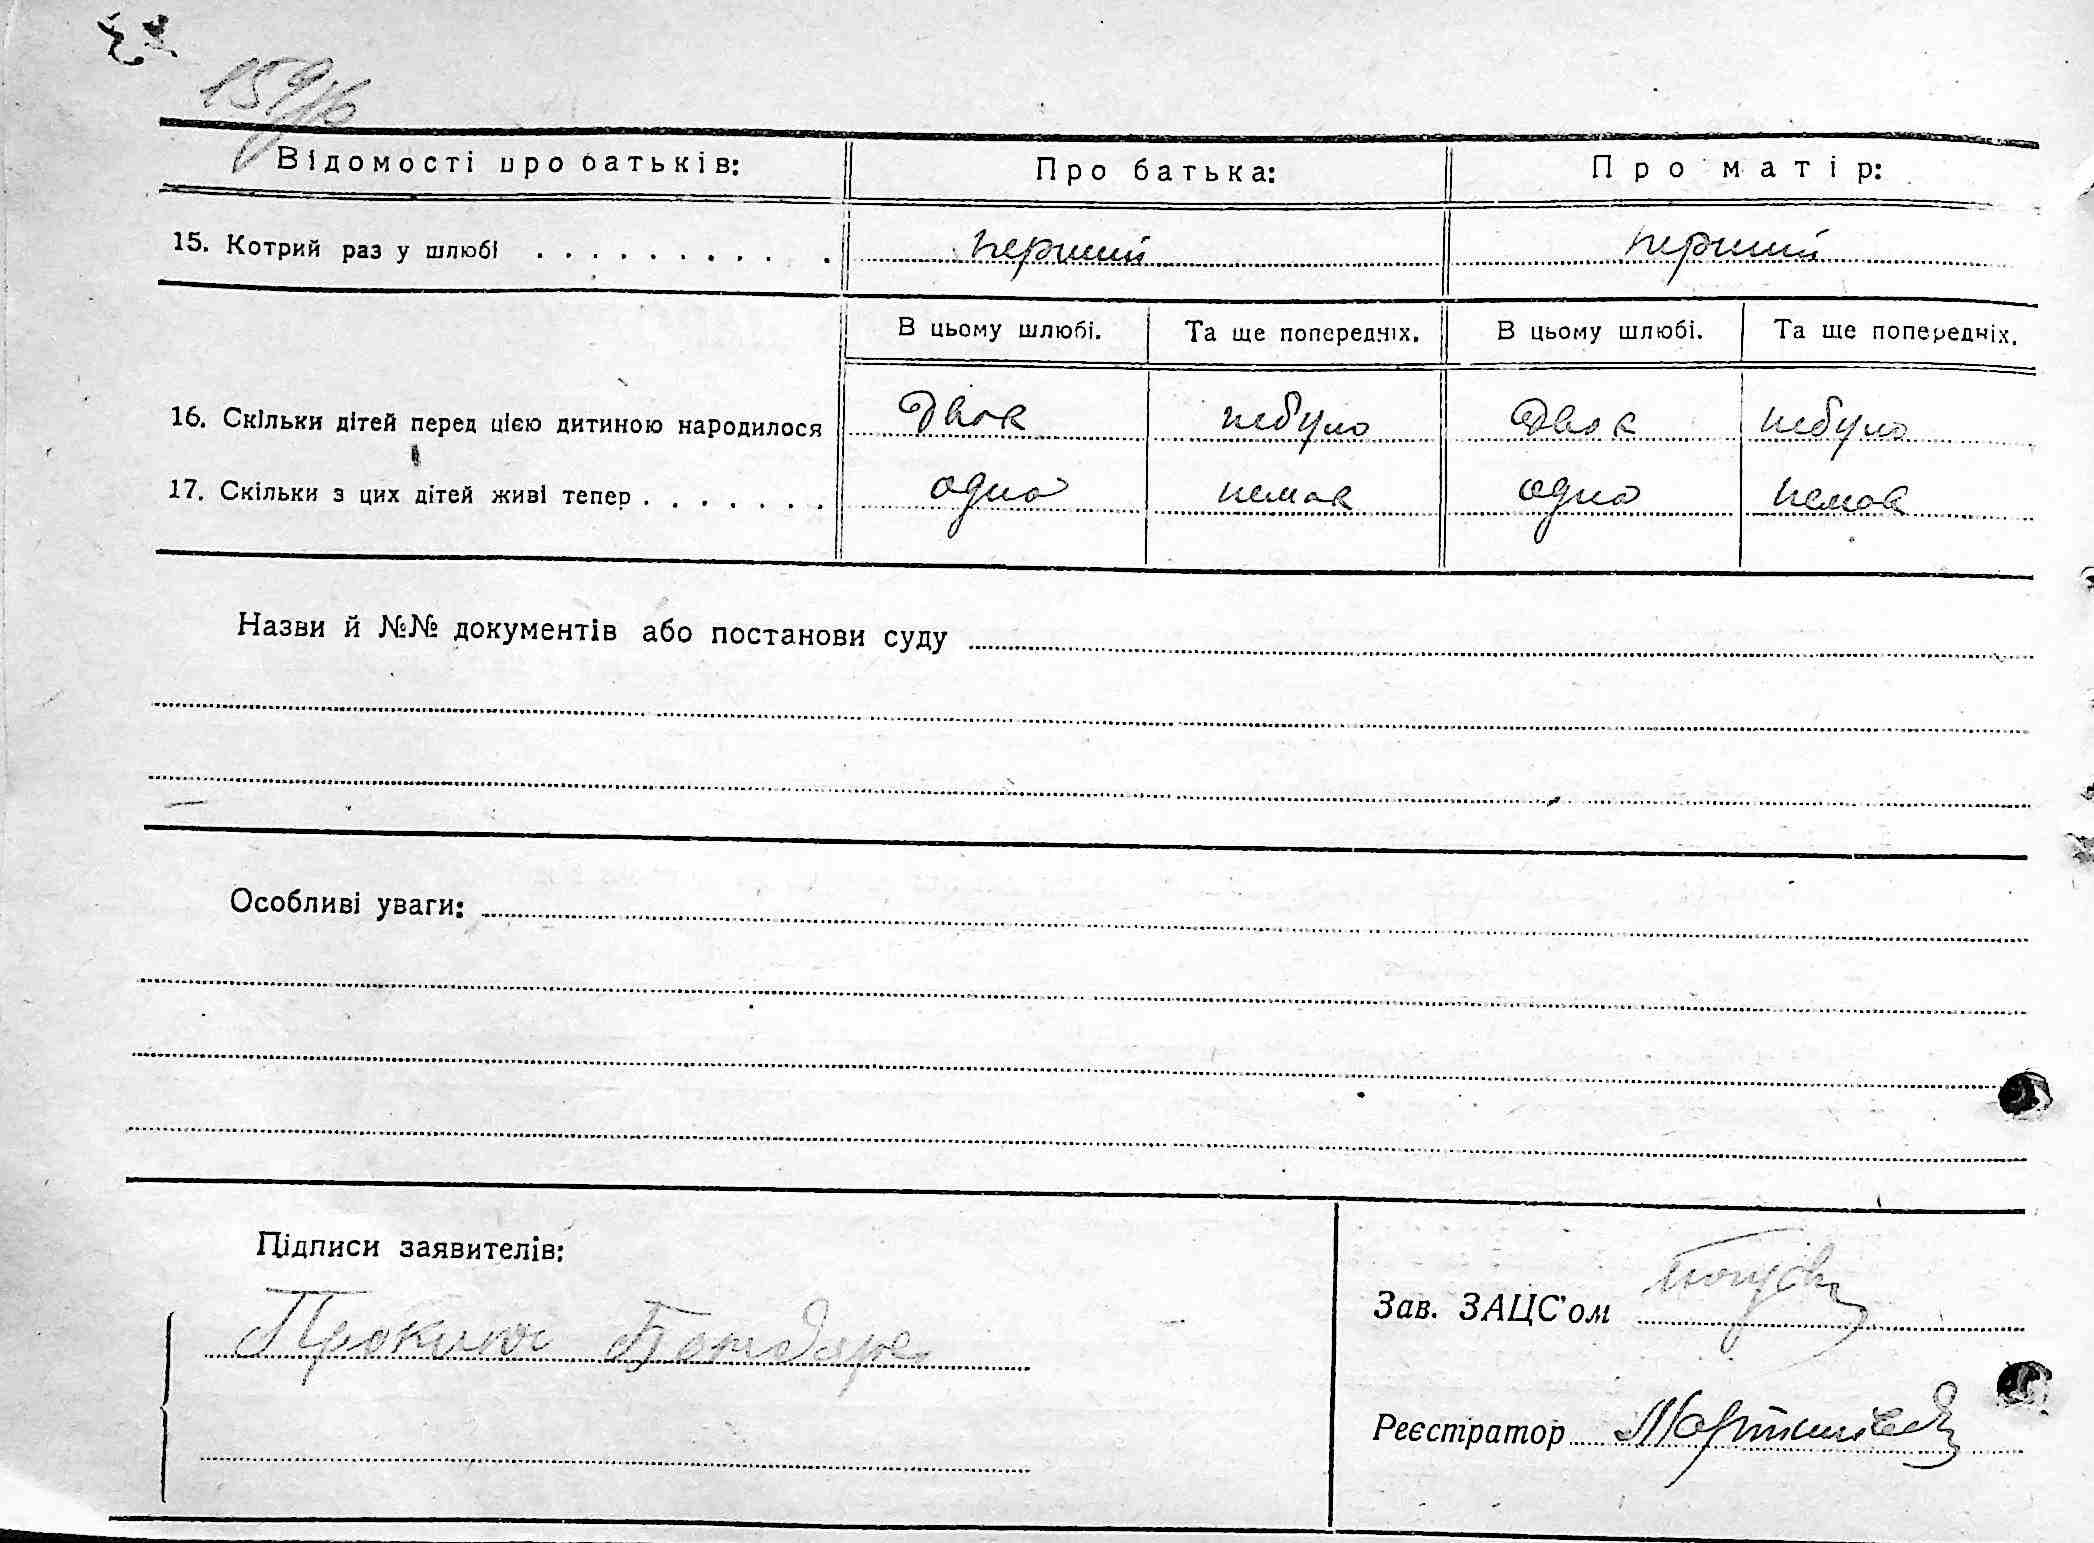 Відомості про батьків: Про батька: Про матір:
15. Котрий раз у шлюбі . . . . . . . . . . перший перший
В цьому шлюбі. Та ще попередніх. В цьому шлюбі. Та ще попередніх.
16. Скільки дітей перед цією дитиною народилося двок небуло двок небуло
17. Скільки з цих дітей живі тепер . . . . . . . одно немає одно немає
Назви й №№ документів або постанови суду
Особливі уваги:
Підписи заявителів:
Зав. ЗАЦС'ом
Бондаре
Реєстратор